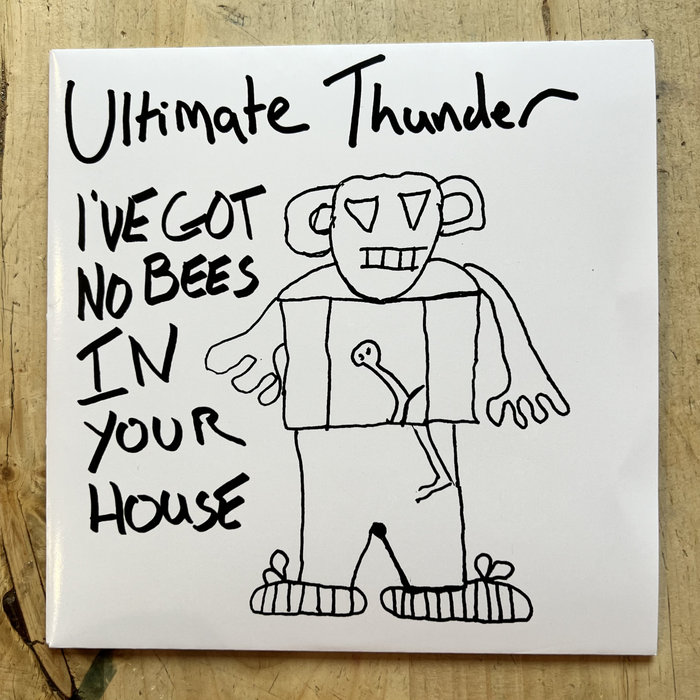 Ultimate Thunder
I'VE GOT
NO BEES
IN
YOUR
HOUSE